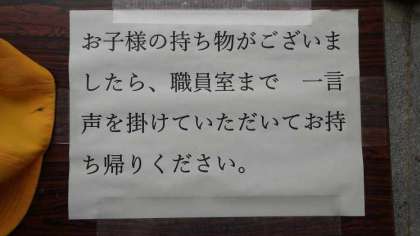 お子様の持ち物がございま
したら、職員室まで　一言
声を掛けていただいてお持
ち帰りください。